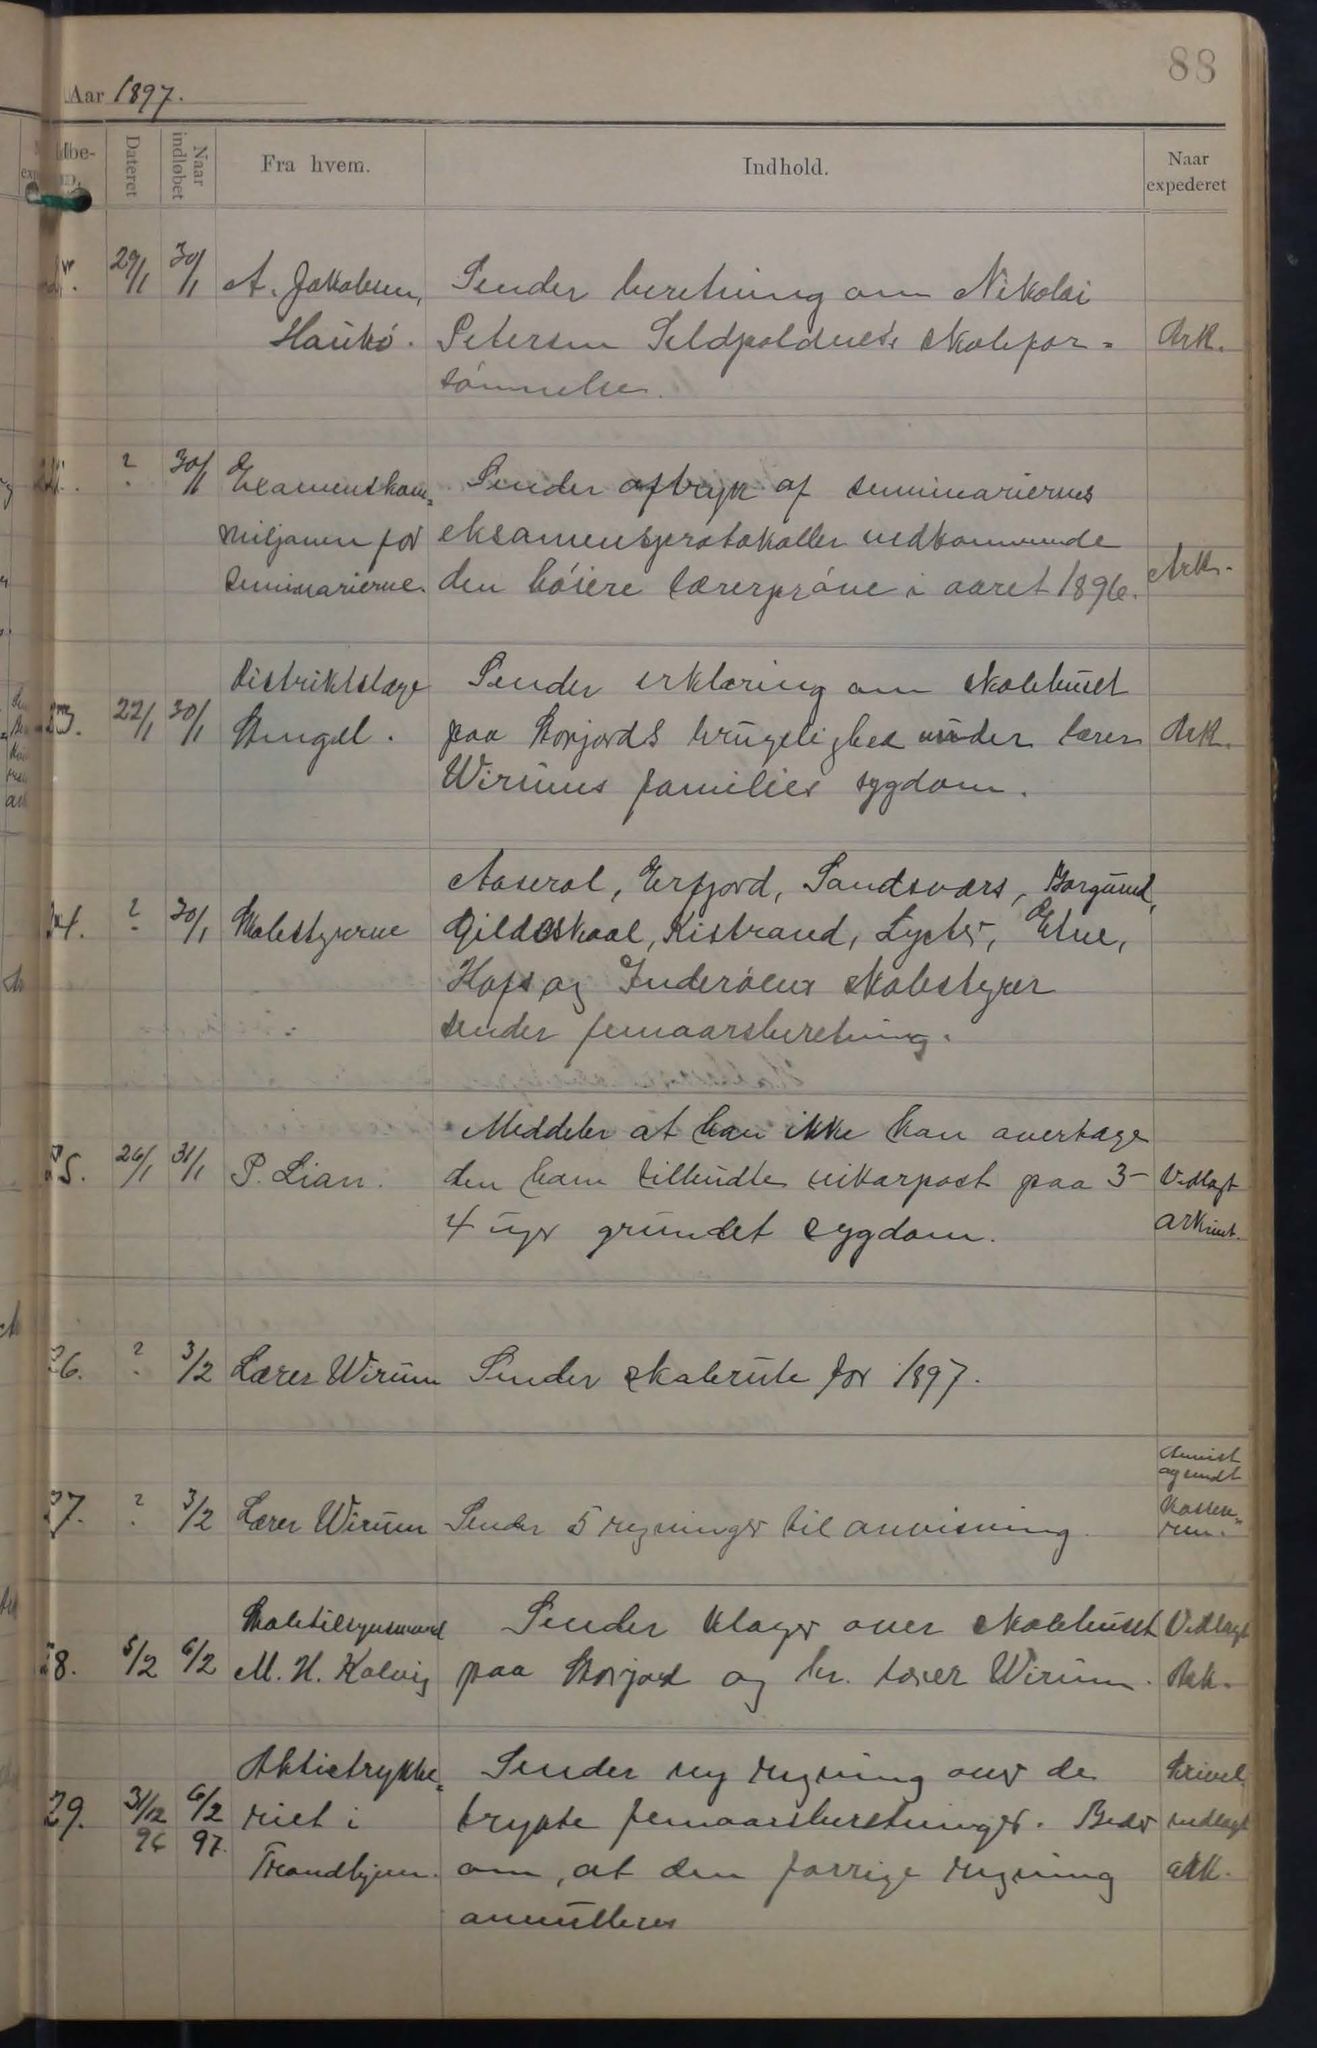 88
Aar 1897.
Dateret
Naar indløbet
Fra hvem.
Indhold.
Naar expederet
29/1 30/1 A. Jakobsen, Sender beretning om Nikolai
Haukö. Petersen skolefor= Ark.
sömmelse.
? 30/1 Examenskom= Sender aftryk af seminariernes
misjonen for eksamensprotokoller vedkommende
seminarierne. den höiere lærerpröve i aaret 1896. Ark.
Distriktslæge Sender erklæring om skolehuset
23. 22/1 30/1 Stengel. paa Storjords brugelighed under lærer Ark.
Wirums families sygdom.
Aaseral, Erfjord, Sandsværs, Borgund,
24. ? 30/1 Skolestyrerne Gildeskaal, Kistrand, Etne,
Hofs og Inderöens skolestyrer
sender femaarsberetning.
Meddeler at han ikke kan overtage
25. 26/1 31/1 P. Lian. den ham tilbudte vikarpost paa 3- Vedlagt
4 uger grundet sygdom. arkivet.
26. ? 3/2 Lærer Wirum Sender skolerute for 1897.
Anvist
og sendt
27. ? 3/2 Lærer Wirum Sender 5 regninger til anvisning. kasse=
reren.
Skoletilsynsmand Sender klager over skolehuset Vedlagt
28. 5/2 6/2 M. H. Kolvig paa Storjord og hr. lærer Wirum. Ark.
Aktietrykke= Sender ny regning over de Skrivel.
29. 31/12 6/2 riet i trykte femaarsberetninger. Beder vedlagt
96 97. Trondhjem. om, at den forrige regning ark.
annulleres